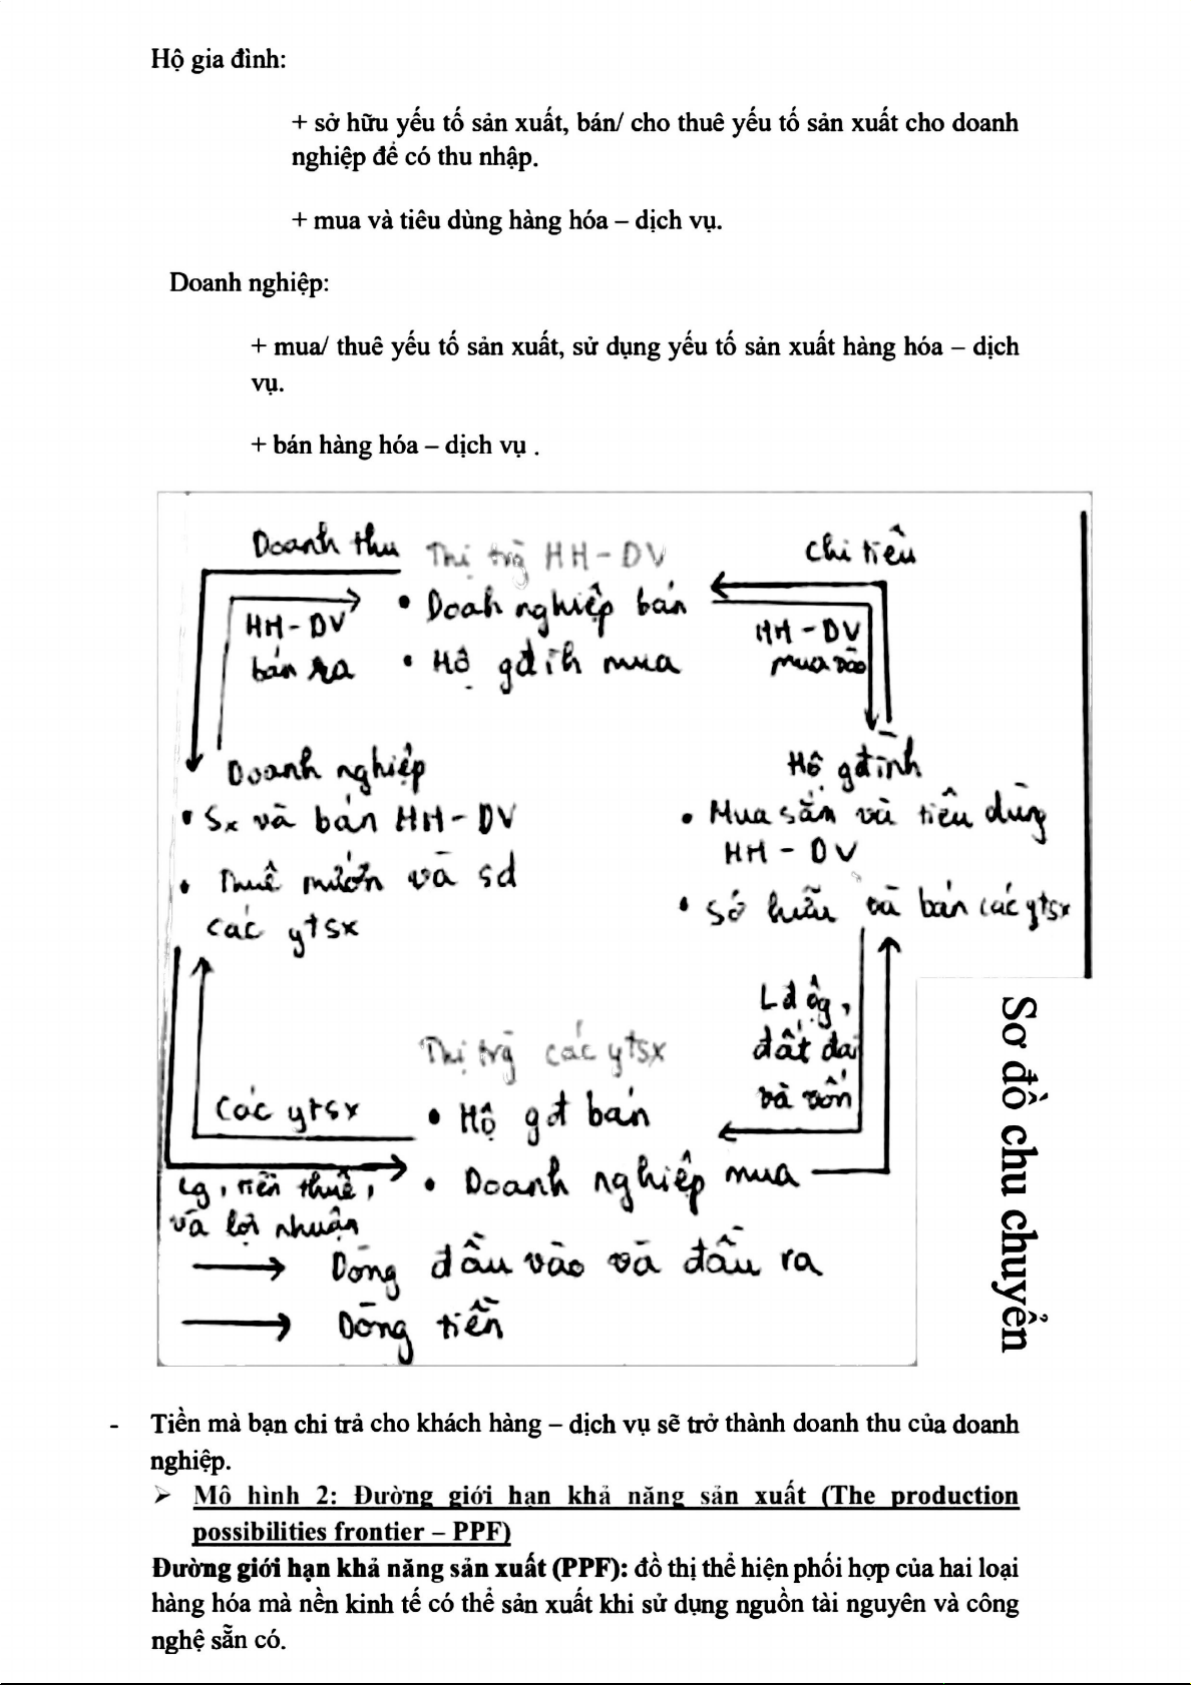 Hộ gia đình:
+ sở hữu yếu tố sản xuất, bán/ cho thuê yếu tố sản xuất cho doanh
nghiệp để có thu nhập.
+ mua và tiêu dùng hàng hóa – dịch vụ.
Doanh nghiệp:
+ mua/ thuê yếu tố sản xuất, sử dụng yếu tố sản xuất hàng hóa – dịch
vụ.
+ bán hàng hóa – dịch vụ .
Doanh thu
Thị trg HH - DV
Chi tiêu
• Doah nghiệp bán
HH - DV
bán ra
• Hộ gđih mua
HH - DV
mua vào
Doanh nghiệp
• Sx và bán HH - DV
• Thuê mướn và sd
các ytsx
Hộ gđình
• Mua sắm và tiêu dùng
HH - DV
• Sở hữu và bán các ytsx
Lđộg,
đất đai
và vốn
Thị trg các ytsx
Các ytsx
• Hộ gđ bán
• Doanh nghiệp mua
Lg, tiền thuê,
và lợi nhuận
Dòng đầu vào và đầu ra
Dòng tiền
Sơ đồ chu chuyển
- Tiền mà bạn chi trả cho khách hàng – dịch vụ sẽ trở thành doanh thu của doanh
nghiệp.
➢ Mô hình 2: Đường giới hạn khả năng sản xuất (The production
possibilities frontier – PPF)
Đường giới hạn khả năng sản xuất (PPF): đồ thị thể hiện phối hợp của hai loại
hàng hóa mà nền kinh tế có thể sản xuất khi sử dụng nguồn tài nguyên và công
nghệ sẵn có.